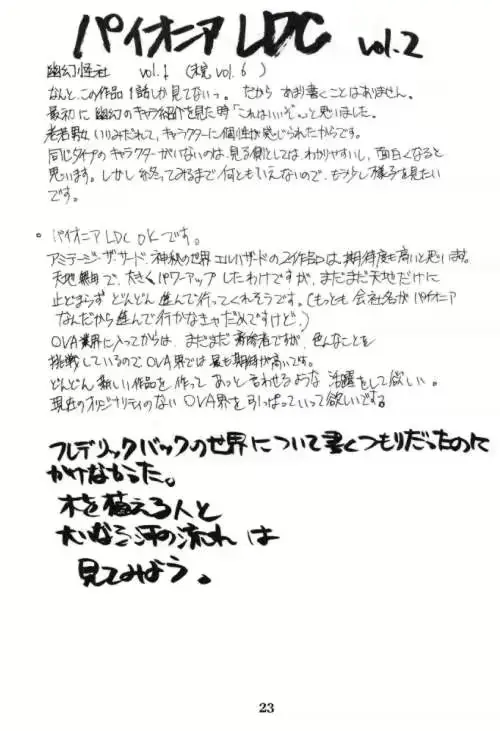 パイオニア LDC vol.2
幽幻怪社 vol.1 (現 vol.6)
なんと、この作品 1話しか見てないっ。だから あまり書くことはありません。
最初に 幽幻の キャラ紹介を見た時「これはいいぞ。」と思いました。
老若男女 いりみだれて、キャラクターに個性が感じられたからです。
同じタイプの キャラクターがいないのは、見る側としては、わかりやすいし、面白くなると
思います。しかし 終ってみるまで 何ともいえないので、もう少し様子を見たい
です。
。パイオニア LDC OK です。
アミテージ・ザ・サード、神秘の世界エルハザードの2作品は、期待度も高いと思います。
天地無用で、大きくパワーアップしたわけですが、まだまだ天地だけに
止どまらず どんどん 進んで行ってくれそうです。(もっとも 会社名が パイオニア
なんだから進んで行かなきゃだめですけど。)
OVA業界に入ってからは、まだまだ 若者ですが、色んなことを
挑戦しているので OVA界では 最も期待が高いです。
どんどん 新しい作品を 作って あっと 言わせるような 活躍をして欲しい。
現在のオリジナリティのない OVA界を 引っぱっていって欲しいですね
フレデリックバックの世界について書くつもりだったのに
かけなかった。
木を植える人と
大いなる河の流れ は
見てみよう。
23